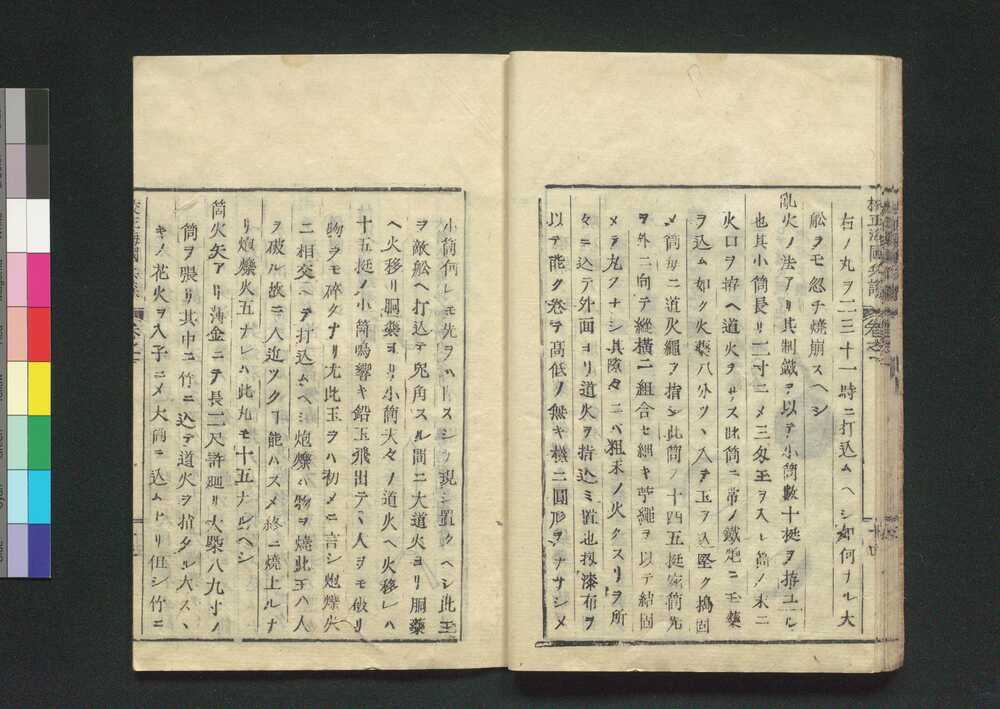 右ノ丸ヲ二三十一時ニ打込ムヘシ如何ナル大
舩ヲモ忽チ燒崩スヘシ
亂火ノ法アリ其制鐵ヲ以テ小筒數十挺ヲ拵ユル
也其小筒長サ二寸ニメ三匁玉ヲ入レ筒ノ末ニ
火口ヲ拵ヘ道火ヲサス此筒ニ常ノ鐵炮ニ玉藥
ヲ込ム如ク火藥八分ツヽ入テ玉ヲ込堅ク搗固
メ筒每ニ道火繩ヲ指シ此筒ヲ十四五挺宛筒先
ヲ外ニ向テ縱橫ニ組合セ細キ苧繩ヲ以テ結固
メテ丸ヲナシ其隙々ニハ粗末ノ火クスリヲ所
々ニ込テ外面ヨリ道火ヲ指込ミ置也扨漆布ヲ
以テ能ク卷テ高低ノ無キ樣ニ圓形ヲナサシメ
小筒何レモ先ヲハ出スシテ現シ置クヘシ此玉
ヲ敵舩ヘ打込テ兎角スル間ニ大道火ヨリ胴藥
ヘ火移リ胴藥ヨリ小筒夫々ノ道火ヘ火移レハ
十五挺ノ小筒鳴響キ鉛玉飛出テヽ人ヲモ破リ
物ヲモ碎クナリ尤此玉ヲハ初メニ言シ炮爍火
ニ相交ヘテ打込ムヘシ炮爍ハ物ヲ燒此玉ハ人
ヲ破ル故ニ人近ツクヿ能ハスメ終ニ燒上ルナ
リ炮爍火五ナレハ此丸モ十五ナルヘシ
筒火矢アリ薄金ニテ長二尺許廻リ大槩八九寸ノ
筒ヲ張リ其中ニ竹ニ込テ道火ヲ指タル大スヽ
キノ花火ヲ入子ニメ大筒ニ込ムヿリ但シ竹ニ